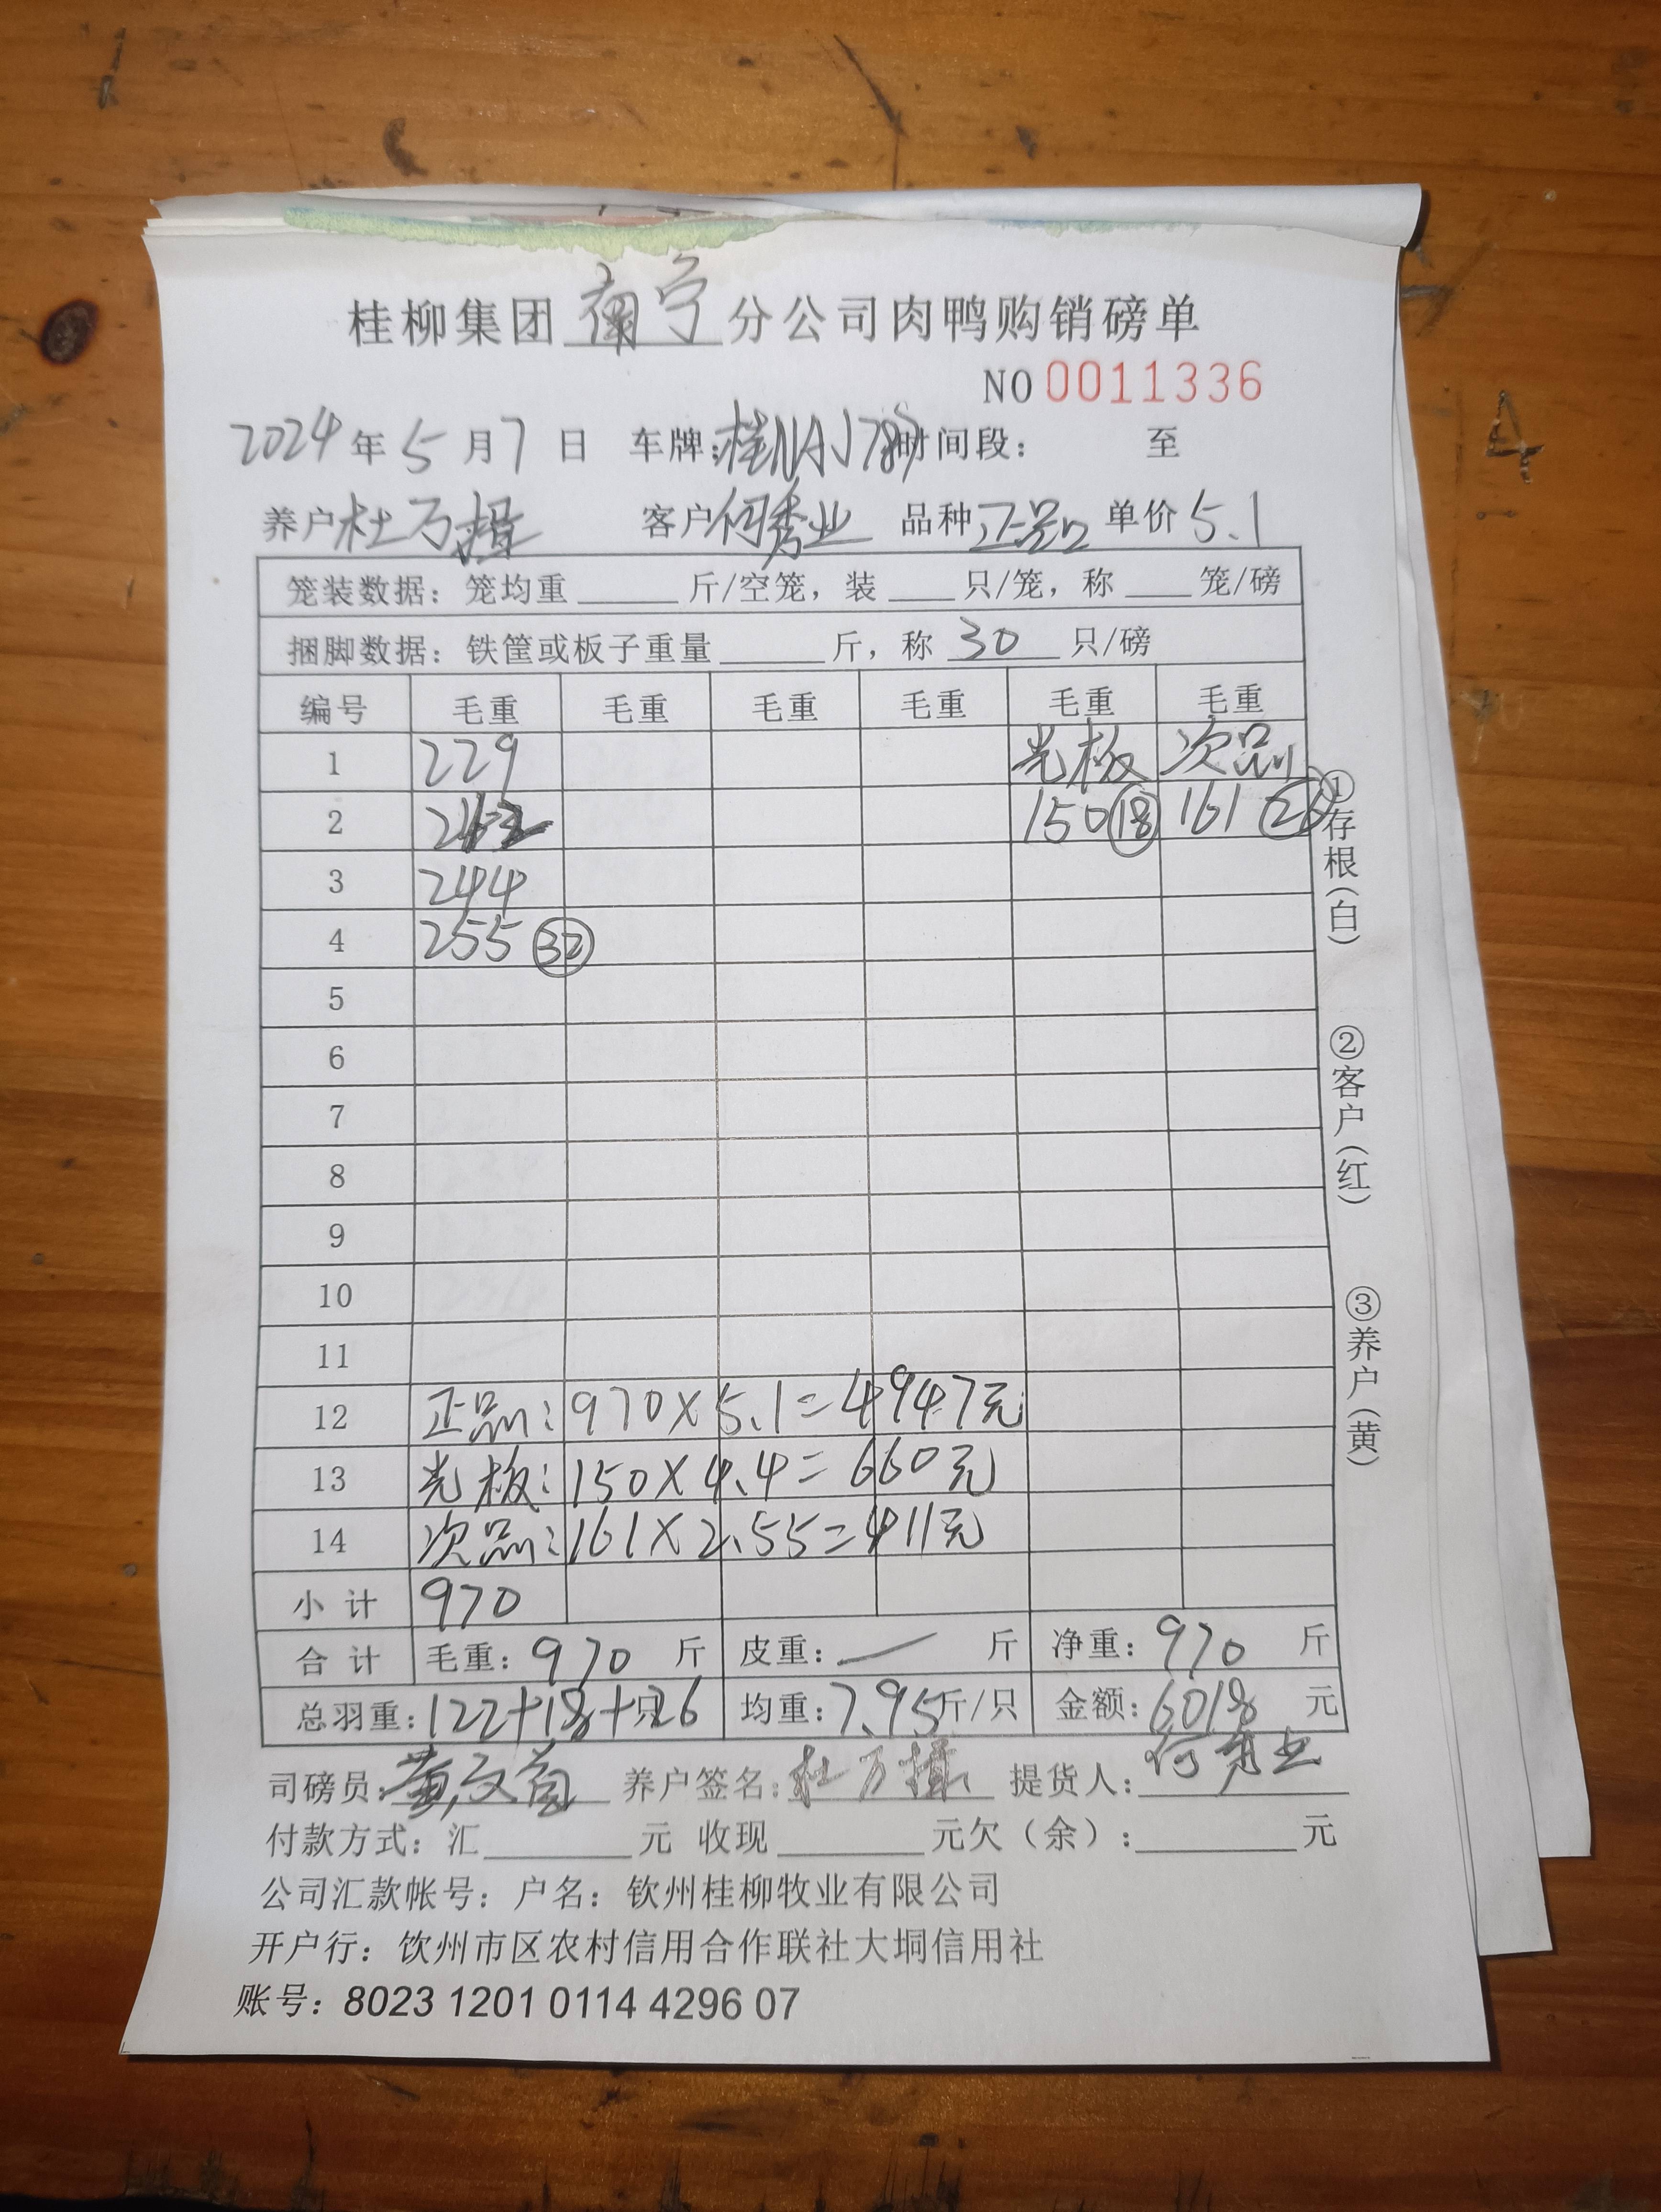 桂柳集团 南宁 分公司肉鸭购销磅单
NO 0011336
2024 年 5 月 7 日 车牌: 桂NAJ 时间段: 至
养户 杜万 客户 何秀业 品种 正品 单价 5.1
笼装数据: 笼均重 ____ 斤/空笼, 装 ____ 只/笼, 称 ____ 笼/磅
捆脚数据: 铁筐或板子重量 ____ 斤, 称 30 只/磅
编号 毛重 毛重 毛重 毛重 毛重 毛重
1 229 光板 次品
2 150 ⑱ 161
3 244
4 255 ㉜
5
6
7
8
9
10
11
12 正品: 970×5.1=4947元
13 光板: 150×4.4=660元
14 次品: 161×2.55=411元
小计 970
合计 毛重: 970 斤 皮重: — 斤 净重: 970 斤
总羽重: 122+18+26 只 均重: 7.95 斤/只 金额: 6018 元
司磅员: 黄文 养户签名: 杜万 提货人: 何秀业
付款方式: 汇 ____ 元 收现 ____ 元欠(余): ____ 元
公司汇款帐号: 户名: 钦州桂柳牧业有限公司
开户行: 钦州市区农村信用合作联社大垌信用社
账号: 8023 1201 0114 4296 07
①存根(白)
②客户(红)
③养户(黄)